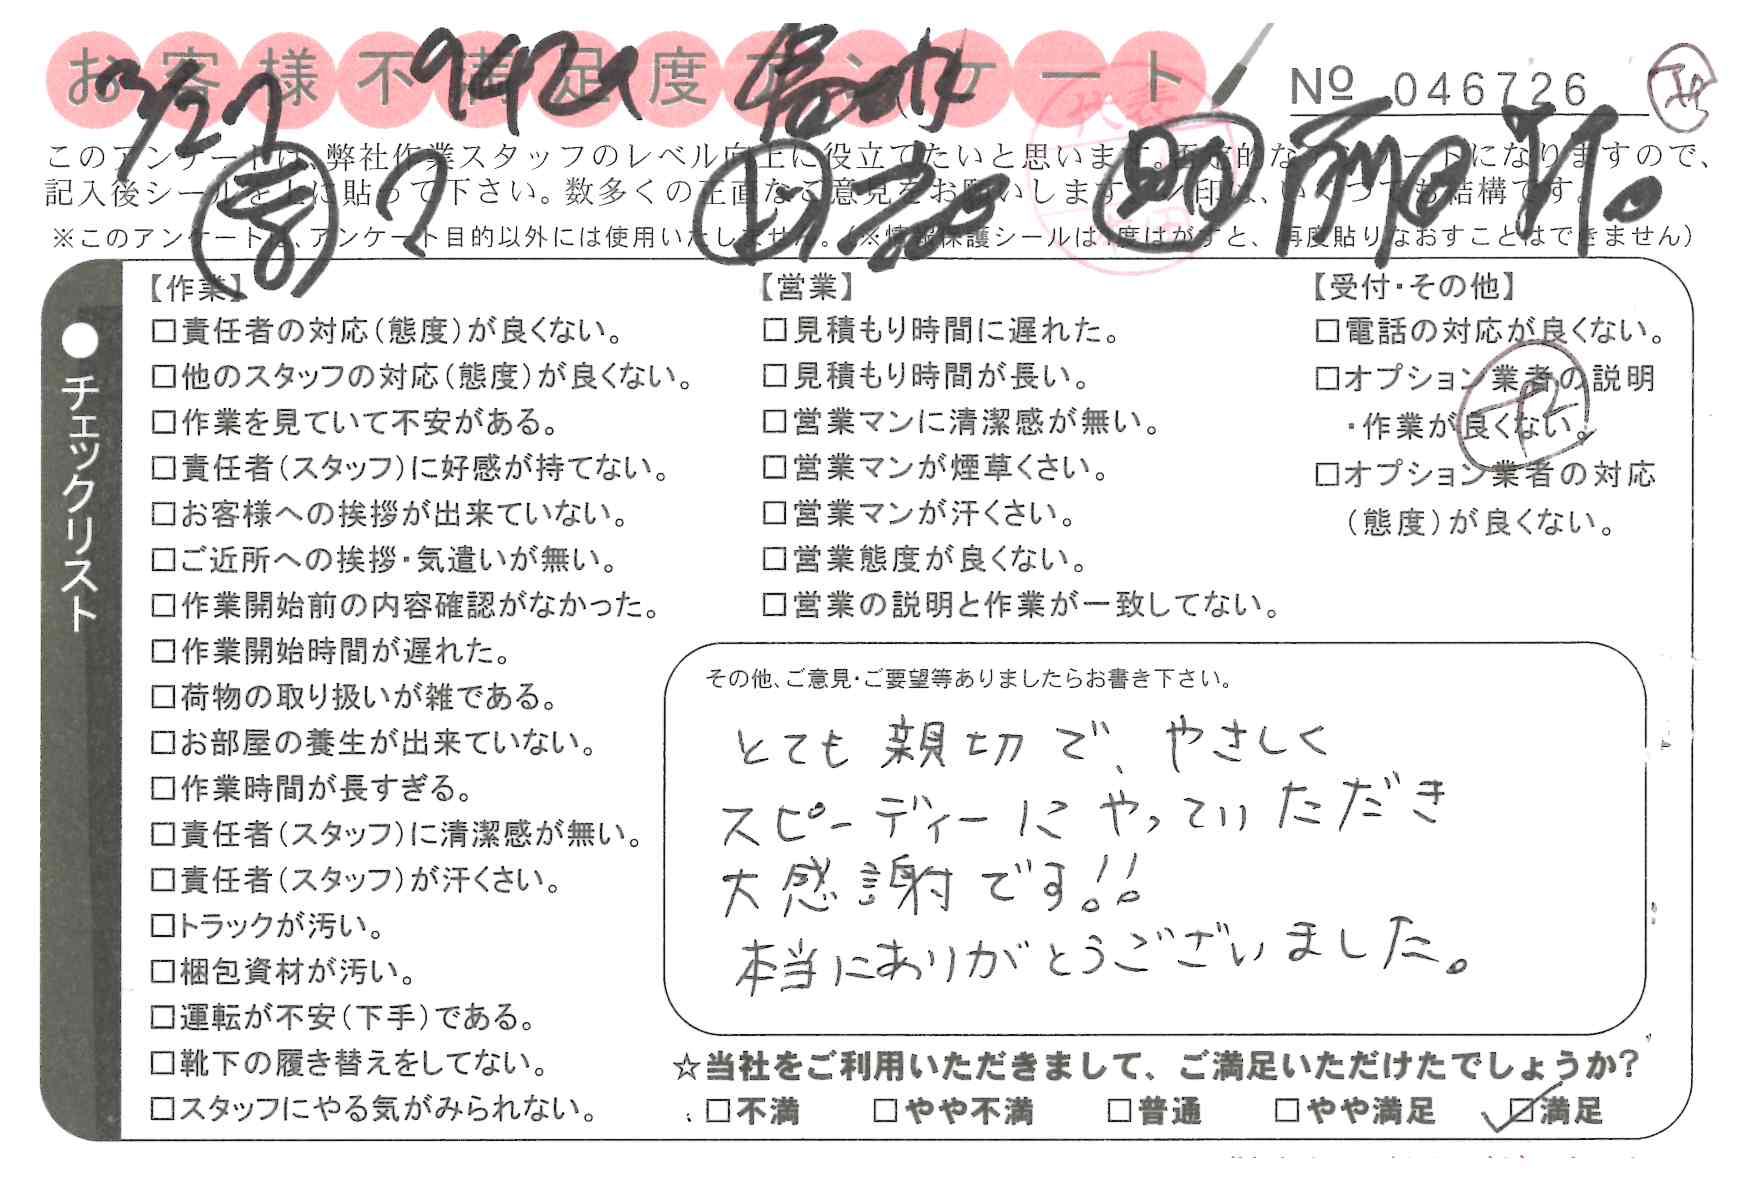 お客様不満足度アンケート
No 046726
このアンケートは、弊社作業スタッフのレベル向上に役立てたいと思います。否定的なアンケートになりますので、
記入後シールを上に貼って下さい。数多くの正直なご意見をお願いします。レ印は、いくつでも結構です。
※このアンケートは、アンケート目的以外には使用いたしません。(※情報保護シールは1度はがすと、再度貼りなおすことはできません)
3/27
●チェックリスト
【作業】
□責任者の対応(態度)が良くない。
□他のスタッフの対応(態度)が良くない。
□作業を見ていて不安がある。
□責任者(スタッフ)に好感が持てない。
□お客様への挨拶が出来ていない。
□ご近所への挨拶・気遣いが無い。
□作業開始前の内容確認がなかった。
□作業開始時間が遅れた。
□荷物の取り扱いが雑である。
□お部屋の養生が出来ていない。
□作業時間が長すぎる。
□責任者(スタッフ)に清潔感が無い。
□責任者(スタッフ)が汗くさい。
□トラックが汚い。
□梱包資材が汚い。
□運転が不安(下手)である。
□靴下の履き替えをしてない。
□スタッフにやる気がみられない。
【営業】
□見積もり時間に遅れた。
□見積もり時間が長い。
□営業マンに清潔感が無い。
□営業マンが煙草くさい。
□営業マンが汗くさい。
□営業態度が良くない。
□営業の説明と作業が一致してない。
【受付・その他】
□電話の対応が良くない。
□オプション業者の説明
・作業が良くない。
□オプション業者の対応
(態度)が良くない。
その他、ご意見・ご要望等ありましたらお書き下さい。
とても親切で、やさしく
スピーディーにやっていただき
大感謝です!!
本当にありがとうございました。
☆当社をご利用いただきまして、ご満足いただけたでしょうか?
□不満 □やや不満 □普通 □やや満足 ☑満足